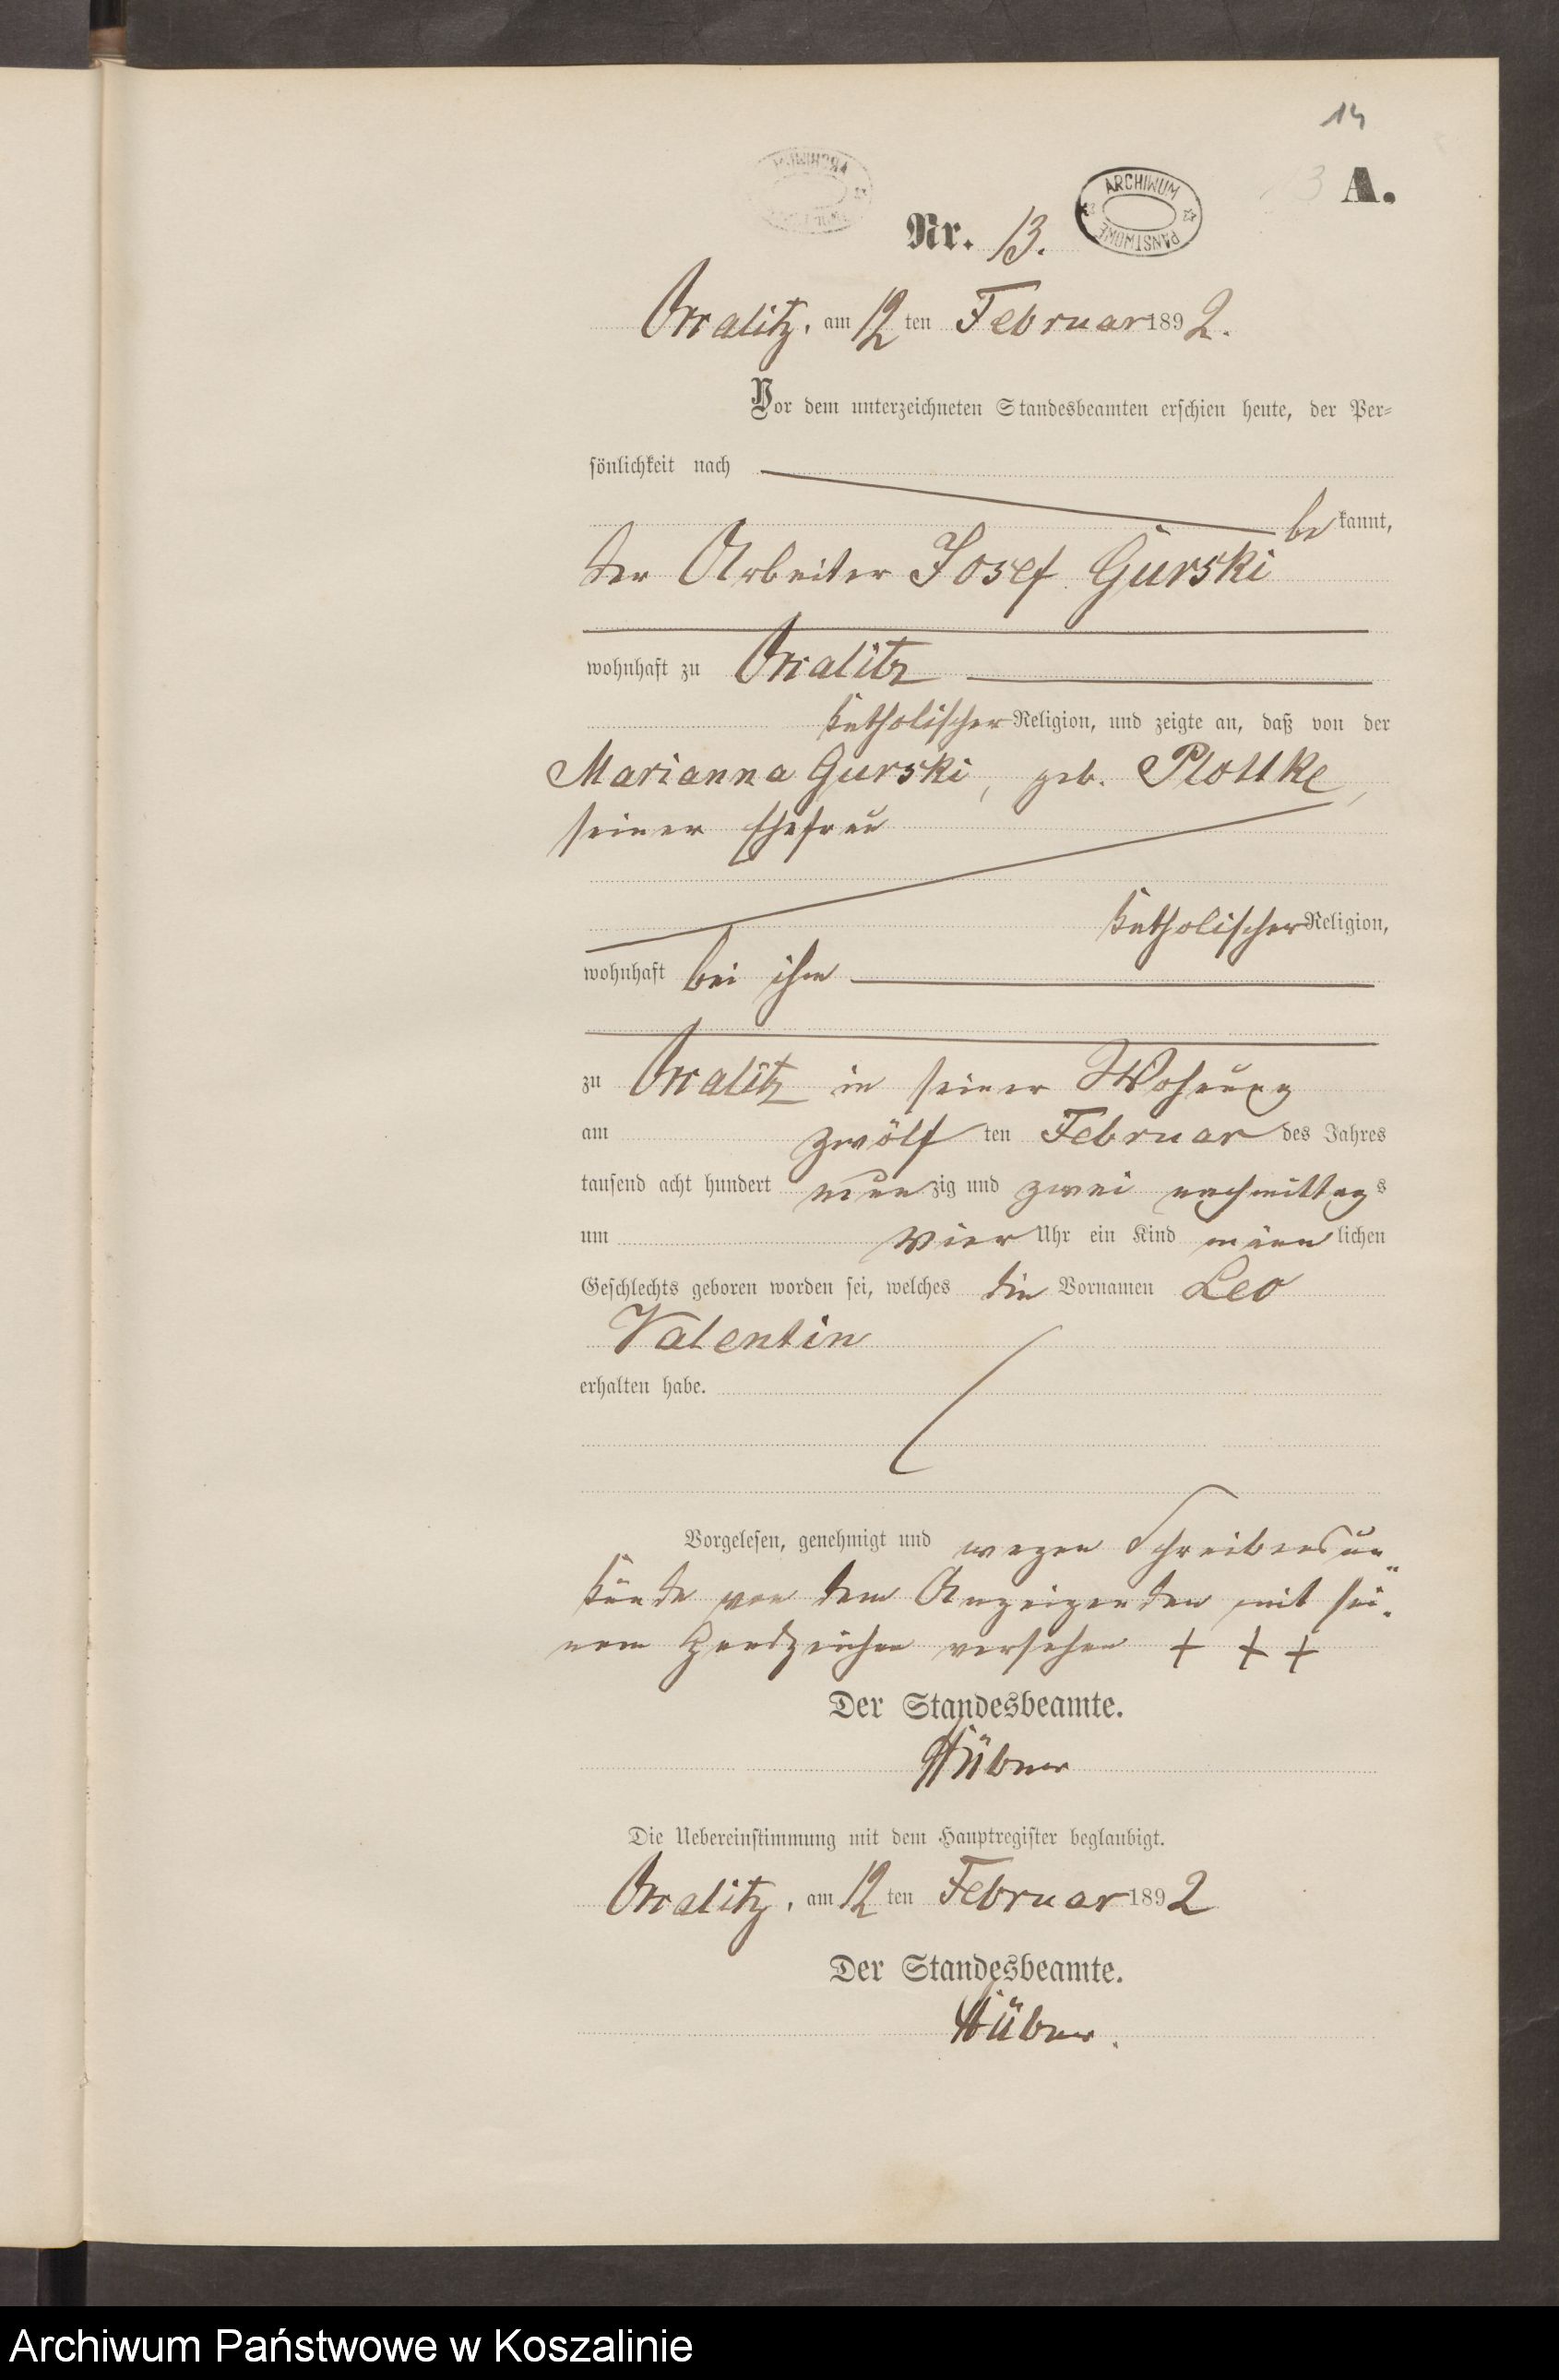 14
A.
ARCHIWUM PAŃSTWOWE
Nr. 13.
am 12 ten Februar 1892.
Vor dem unterzeichneten Standesbeamten erschien heute, der Per-
sönlichkeit nach
be kannt,
der Arbeiter Josef Gurski
wohnhaft zu
katholischer Religion, und zeigte an, daß von der
Marianna Gurski, geb. Plottke,
seiner Ehefrau
katholischer Religion,
wohnhaft bei ihm
zu in seiner Wohnung
am zwölf ten Februar des Jahres
tausend acht hundert neun zig und zwei nachmittags
um vier Uhr ein Kind männ lichen
Geschlechts geboren worden sei, welches die Vornamen Leo
Valentin
erhalten habe.
Vorgelesen, genehmigt und wegen Schreibensun-
kunde von dem Anzeigenden mit sei-
nem Handzeichen versehen + + +
Der Standesbeamte.
Hübner
Die Uebereinstimmung mit dem Hauptregister beglaubigt.
am 12 ten Februar 1892
Der Standesbeamte.
Hübner.
Archiwum Państwowe w Koszalinie